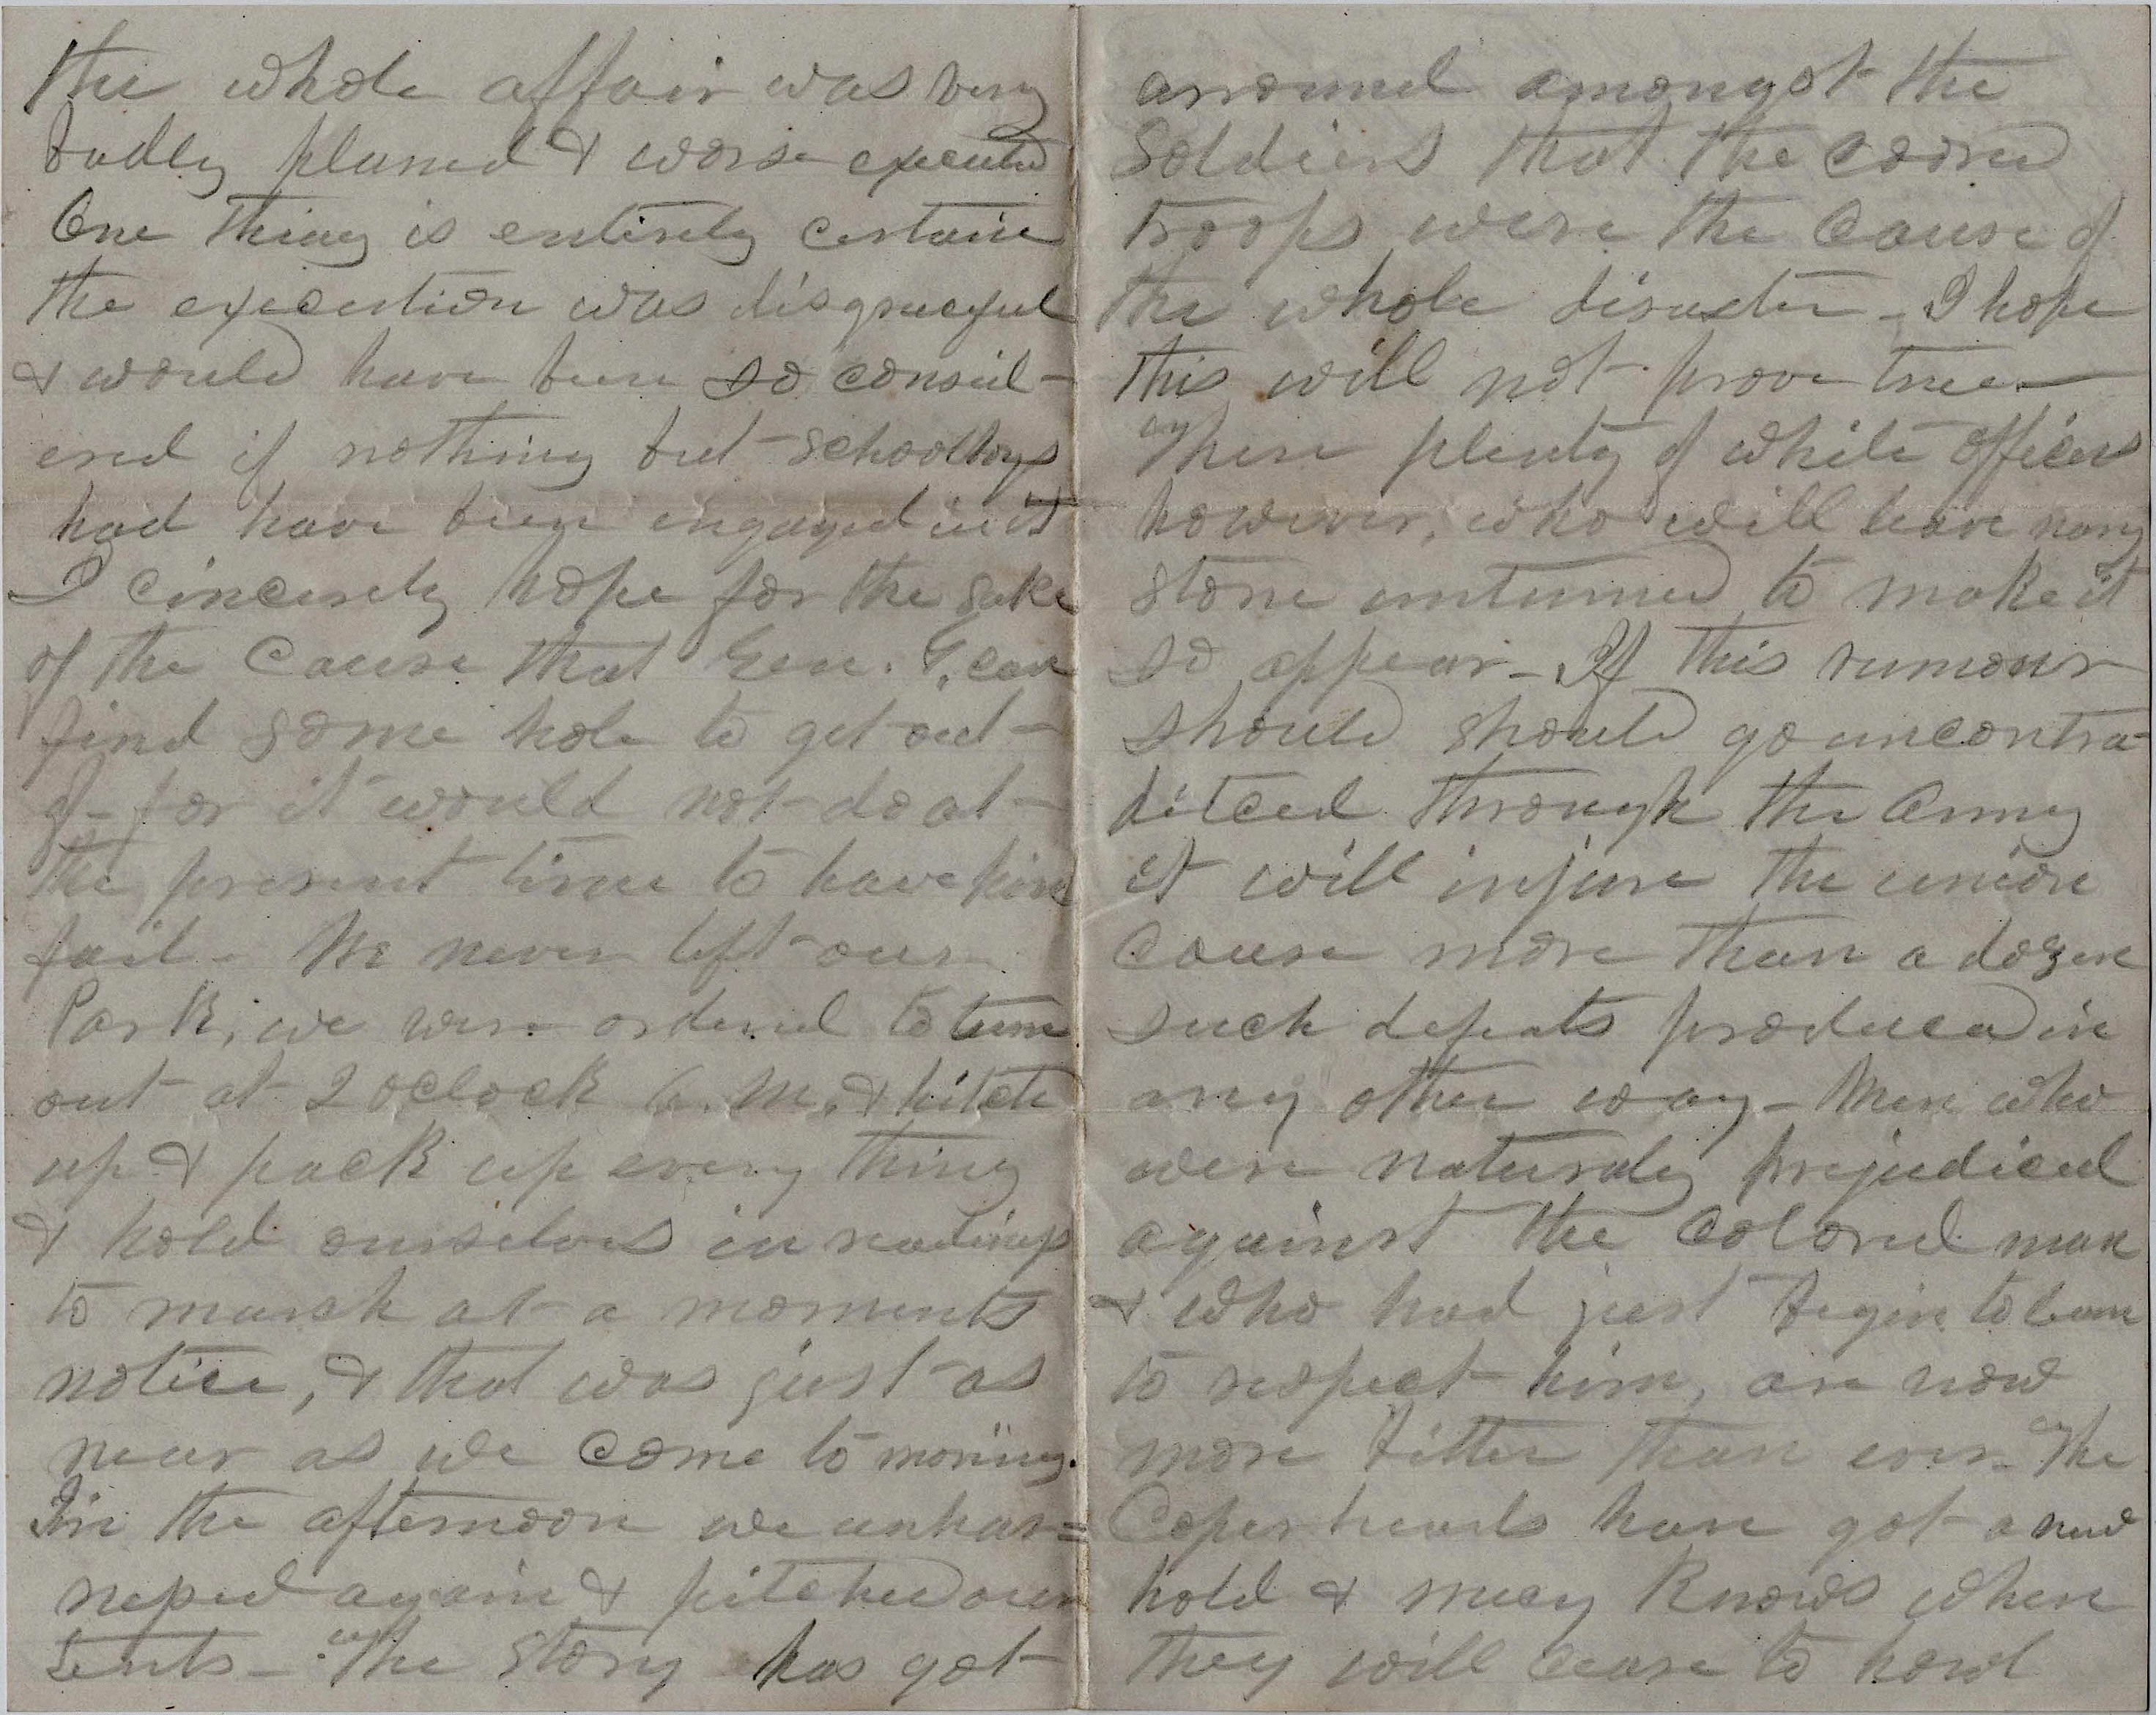 the whole affair was very
badly planed & worse executed
One thing is entirely certain
the execution was disgraceful
& would have been so consid-
ered if nothing but schoolboys
had have been engaged in it
I cincerely hope for the sake
of the cause that Gen. G. can
find some hole to get out
of - for it would not do at
the present time to have him
fail - We never left our
Park, we were ordered to turn
out at 2 oclock A.M. & hitch
up & pack up every thing
& hold ourselves in readiness
to march at a moments
notice, & that was just as
near as we come to moving.
In the afternoon we unhar=
nessed again & pitched our
tents - The story has got
arround amongst the
Soldiers that the colored
troops were the cause of
the whole disaster - I hope
this will not prove true -
There plenty of white officers
however, who will leave
stone unturned to make it
so appear - If this rumour
should should go uncontra-
diteed through the Army
it will injure the union
cause more than a dozen
such defeats produced in
any other way - Men who
were naturaly prejudiced
against the Colored man
& who had just begin to learn
to respect him, are now
more bitter than ever - The
Coperheads have got a new
hold & mercy knows when
they will cease to howl